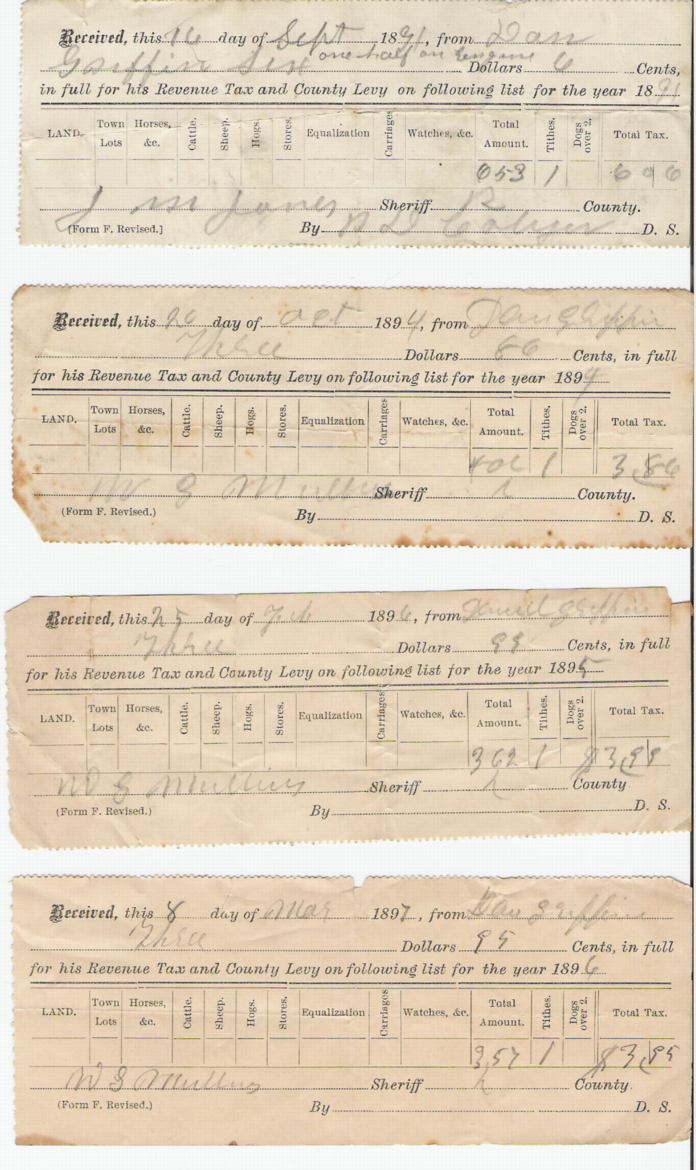 Received, this 16 day of Sept 1891, from Dan
Griffin Six one half on Engine Dollars 6 Cents,
in full for his Revenue Tax and County Levy on following list for the year 1891
LAND. Town Lots Horses, &c. Cattle. Sheep. Hogs. Stores. Equalization Carriages Watches, &c. Total Amount. Tithes. Dogs over 2. Total Tax.
653 1 606
J M Jones Sheriff R County.
[Form F. Revised.] By N D D. S.
Received, this 20 day of Oct 1894, from Dan Griffin
Three Dollars 86 Cents, in full
for his Revenue Tax and County Levy on following list for the year 1894
LAND. Town Lots Horses, &c. Cattle. Sheep. Hogs. Stores. Equalization Carriages Watches, &c. Total Amount. Tithes. Dogs over 2. Total Tax.
1 3,86
W G Mullins Sheriff County.
(Form F. Revised.) By D. S.
Received, this 25 day of Feb 1896, from Daniel Griffin
Three Dollars 99 Cents, in full
for his Revenue Tax and County Levy on following list for the year 1895
LAND. Town Lots Horses, &c. Cattle. Sheep. Hogs. Stores. Equalization Carriages Watches, &c. Total Amount. Tithes. Dogs over 2. Total Tax.
362 1 $3,99
W G Mullins Sheriff County
(Form F. Revised.) By D. S.
Received, this 8 day of Mar 1897, from Dan Griffin
Three Dollars 95 Cents, in full
for his Revenue Tax and County Levy on following list for the year 1896
LAND. Town Lots Horses, &c. Cattle. Sheep. Hogs. Stores. Equalization Carriages Watches, &c. Total Amount. Tithes. Dogs over 2. Total Tax.
3,57 1 $3,95
W G Mullins Sheriff County
(Form F. Revised.) By D. S.